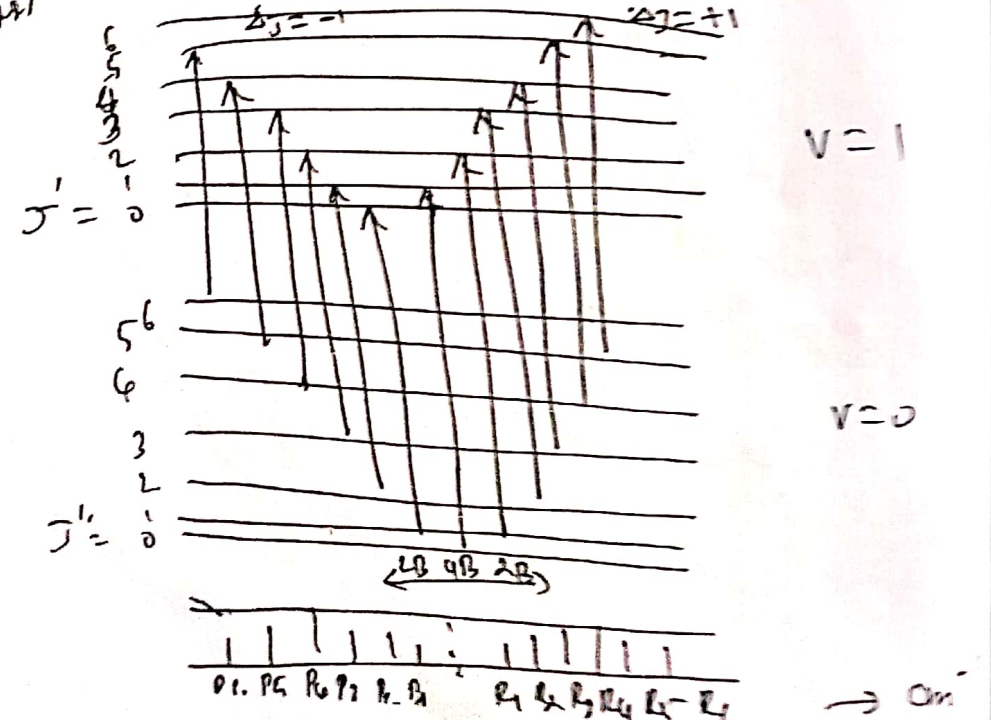 ΔJ = -1 ΔJ = +1
6
5
4
3
2
1
J' = 0
V = 1
6
5
4
3
2
1
J'' = 0
V = 0
2B 4B 2B
P5 P3 P1 R1 R2 R3 R4 R5
→ cm⁻